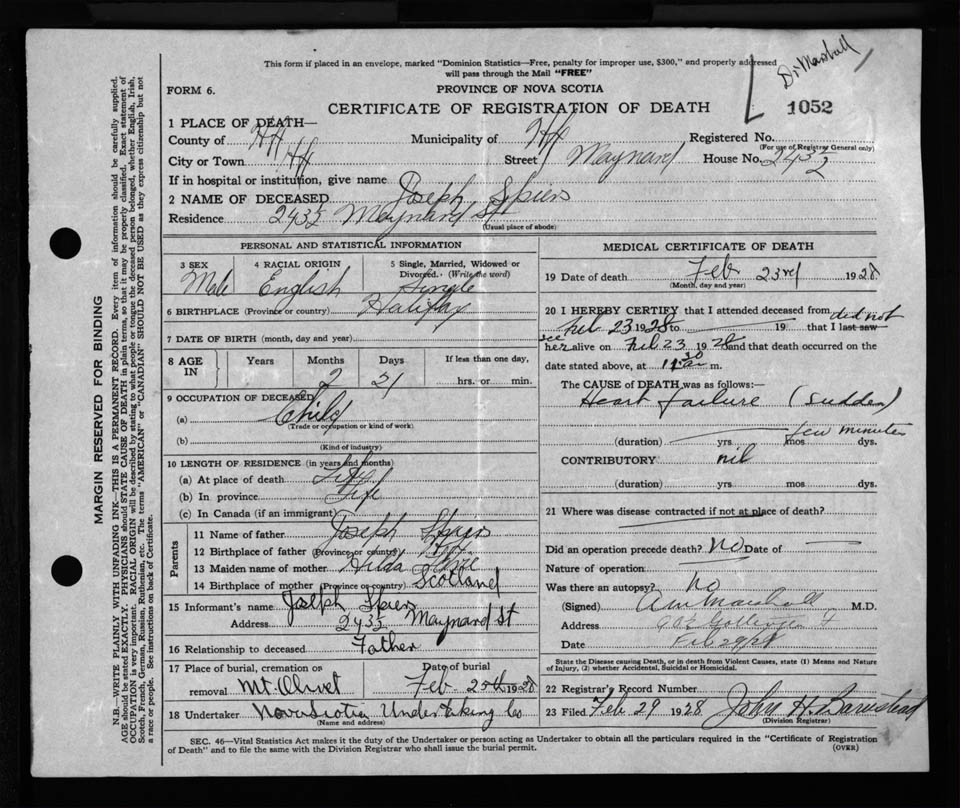 This form if placed in an envelope, marked "Dominion Statistics—Free, penalty for improper use, $300," and properly addressed
will pass through the Mail "FREE"
Dr Marshall
FORM 6.
PROVINCE OF NOVA SCOTIA
CERTIFICATE OF REGISTRATION OF DEATH
1052
1 PLACE OF DEATH—
County of Hfx Municipality of Hfx Registered No.
(For use of Registrar General only)
City or Town Hfx Street Maynard House No. 243½
If in hospital or institution, give name
2 NAME OF DECEASED Joseph Spiers
Residence 243½ Maynard St
(Usual place of abode)
PERSONAL AND STATISTICAL INFORMATION
3 SEX 4 RACIAL ORIGIN 5 Single, Married, Widowed or
Divorced. (Write the word)
Male English Single
6 BIRTHPLACE (Province or country) Halifax
7 DATE OF BIRTH (month, day and year)
8 AGE IN Years Months Days If less than one day,
2 21 hrs. or min.
9 OCCUPATION OF DECEASED
(a) Child
(Trade or occupation or kind of work)
(b)
(Kind of industry)
10 LENGTH OF RESIDENCE (in years and months)
(a) At place of death Life
(b) In province Life
(c) In Canada (if an immigrant)
Parents
11 Name of father Joseph Spiers
12 Birthplace of father (Province or country) Hfx.
13 Maiden name of mother Hilda
14 Birthplace of mother (Province or country) Scotland
15 Informant's name Joseph Spiers
Address 243½ Maynard St
16 Relationship to deceased Father
17 Place of burial, cremation or Date of burial
removal Mt. Olivet Feb 25th 1928
18 Undertaker Nova Scotia Undertaking Co
(Name and address)
MEDICAL CERTIFICATE OF DEATH
19 Date of death Feb 23rd 1928
(Month, day and year)
20 I HEREBY CERTIFY that I attended deceased from did not
Feb 23 1928 to 19 that I last saw
see
her alive on Feb 23 1928 and that death occurred on
date stated above, at 11 30 a m.
The CAUSE of DEATH was as follows:—
Heart failure (sudden)
few minutes
(duration) yrs mos. dys.
CONTRIBUTORY nil
(duration) yrs. mos. dys.
21 Where was disease contracted if not at place of death?
Did an operation precede death? No Date of
Nature of operation
Was there an autopsy? No
(Signed) Marshall M.D.
Address
Date Feb 29/28
State the Disease causing Death, or in death from Violent Causes, state (1) Means and Nature
of Injury, (2) whether Accidental, Suicidal or Homicidal.
22 Registrar's Record Number
23 Filed Feb 29 1928 John H. Barnstead
(Division Registrar)
SEC. 46—Vital Statistics Act makes it the duty of the Undertaker or person acting as Undertaker to obtain all the particulars required in the "Certificate of Registration
of Death" and to file the same with the Division Registrar who shall issue the burial permit.
(OVER)
MARGIN RESERVED FOR BINDING
N.B.—WRITE PLAINLY WITH UNFADING INK—THIS IS A PERMANENT RECORD. Every item of information should be carefully supplied.
AGE should be stated EXACTLY. PHYSICIANS should STATE CAUSE OF DEATH in plain terms, so that it may be properly classified. Exact statement of
OCCUPATION is very important. RACIAL ORIGIN will be described by stating to what people or tongue the deceased person belonged, whether English, Irish,
Scotch, French, German, Russian, Ruthenian, etc. The terms "AMERICAN" or "CANADIAN" SHOULD NOT BE USED as they express citizenship but not
a race or people. See instructions on back of Certificate.